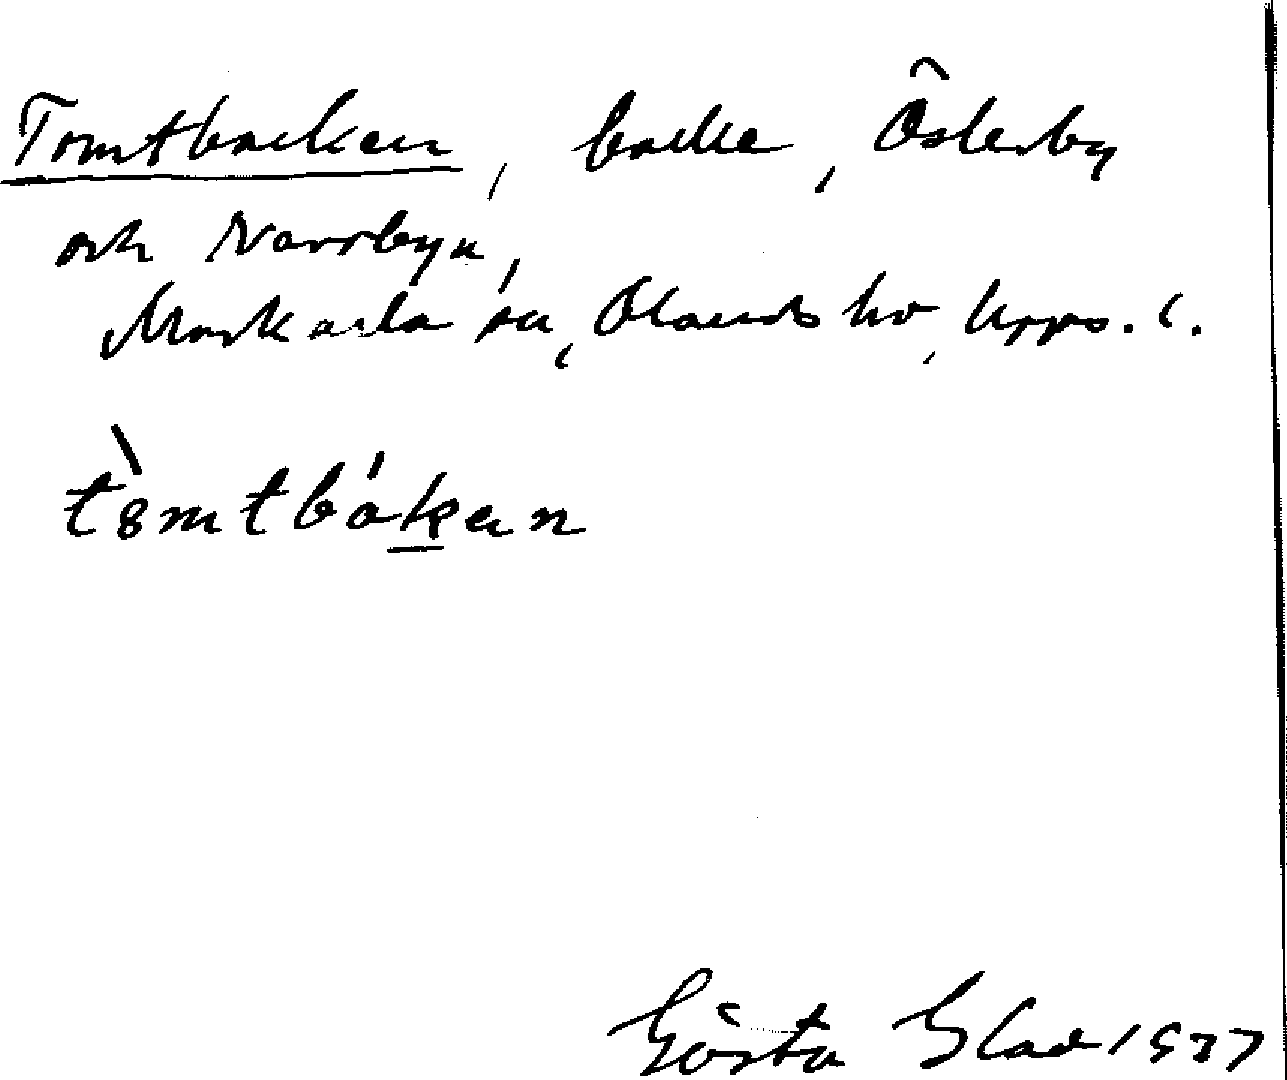 Tomtbacken, backe, Österby
och Norrbyn,
Morkarla sn, Olands hd, Upps. l.
tòmtbákan
Gösta Glad 1937